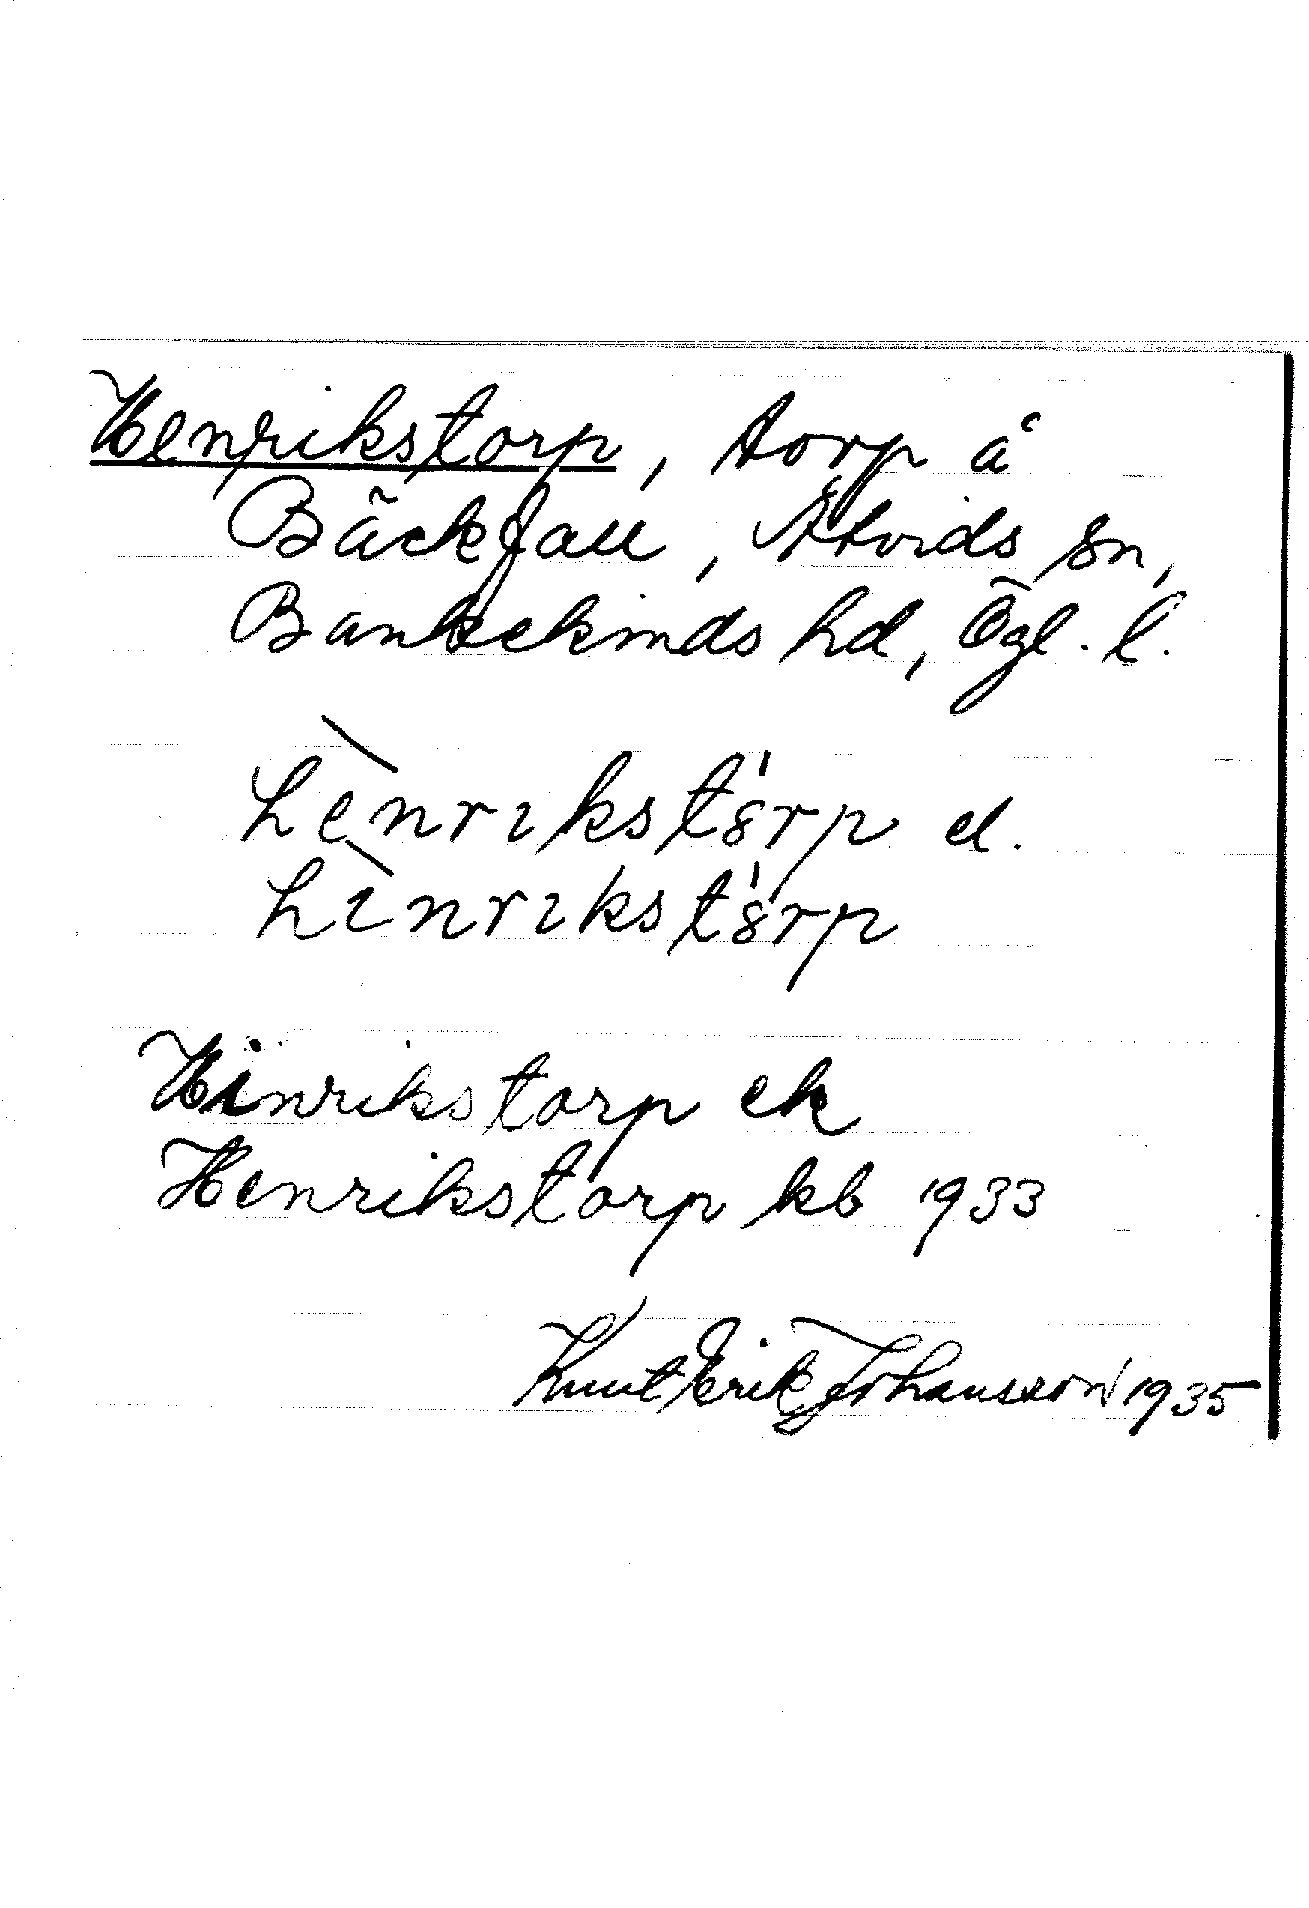 Henrikstorp, torp å
Bäckfall, Åtvids sn,
Bankekinds hd, Ögl. l.
hènrıkstȣ́rp el.
hìnrıkstȣ́rp
Hinrikstorp ek
Henrikstorp kb 1933
Knut Erik Johansson 1935